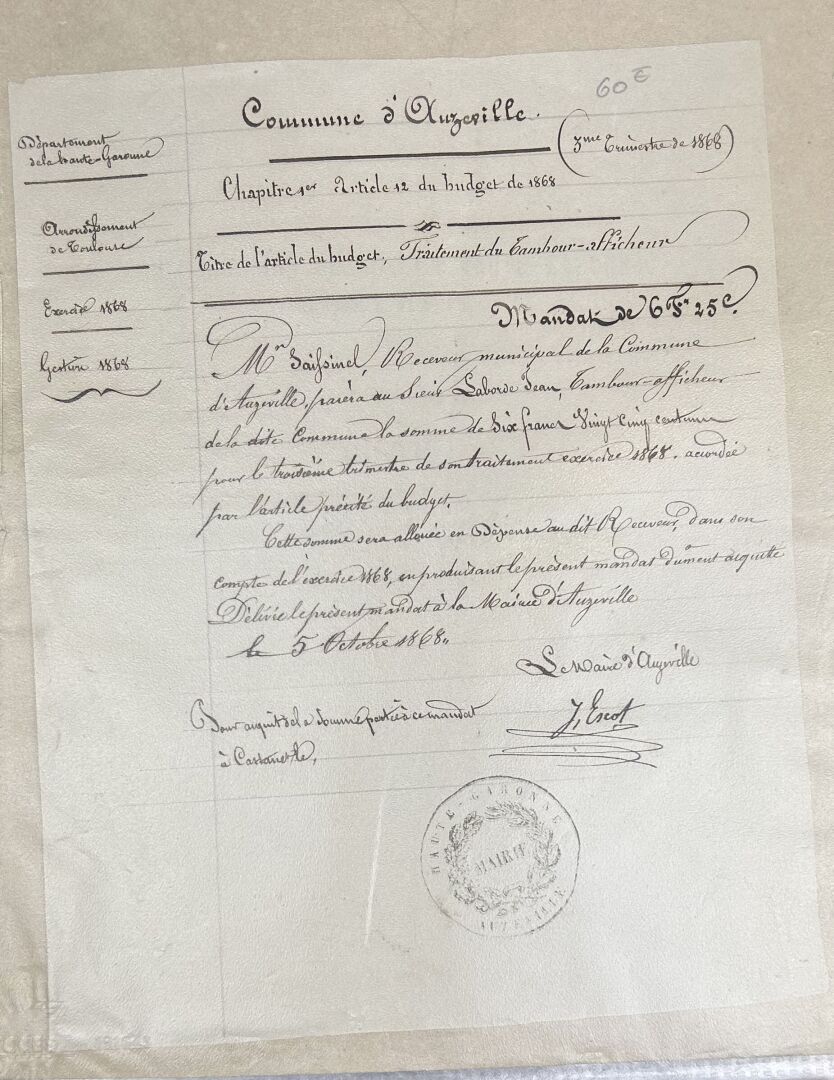 60 €
Commune d'Auzeville.
(3me Trimestre de 1868)
Département
de la haute-Garonne
Chapitre 1er Article 12 du budget de 1868
Arrondissement
de Toulouse
Titre de l'article du budget, Traitement du Tambour-afficheur
Exercice 1868
Mandat de 6 Fr 25 C.
Gestion 1868
Mr Saissinel, Receveur municipal de la Commune
d'Auzeville, paiera au Sieur Laborde Jean, Tambour-afficheur
de la dite Commune la somme de Six francs Vingt cinq centimes
pour le troisième trimestre de son traitement exercice 1868. accordée
par l'article précité du budget.
Cette somme sera allouée en Dépense au dit Receveur, dans son
compte de l'exercice 1868, en produisant le présent mandat dument acquitté
Délivré le présent mandat à la Mairie d'Auzeville
le 5 Octobre 1868.
Le Maire d'Auzeville
Pour acquit de la somme portée à ce mandat
J, Escot
à Castanet le,
HAUTE-GARONNE
MAIRIE
AUZEVILLE